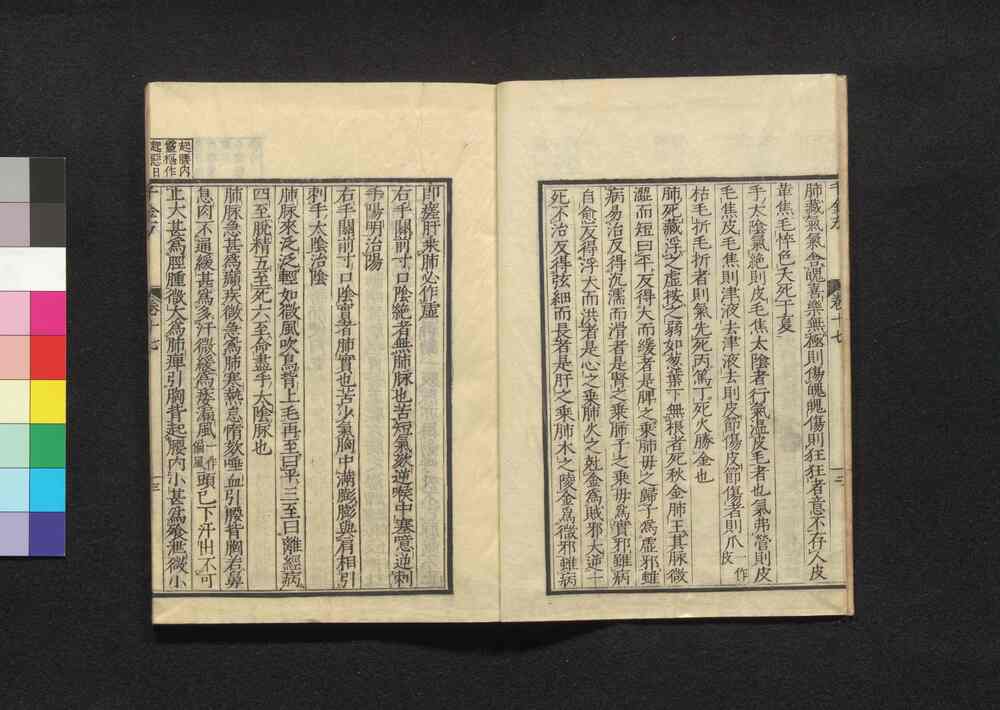 肺藏氣氣舍魄喜樂無極則傷魄魄傷則狂狂者意不存人皮
革焦毛悴色夭死于夏
手太陰氣絕則皮毛焦太陰者行氣溫皮毛者也氣弗營則皮
毛焦皮毛焦則津液去津液去則皮節傷皮節傷者則爪一作皮
枯毛折毛折者則氣先死丙篤丁死火勝金也
肺死藏浮之虛按之弱如葱葉下無根者死秋金肺王其脉微
濇而短曰平反得大而緩者是脾之乘肺母之歸子爲虛邪雖
病易治反得沉濡而滑者是腎之乘肺子之乘母爲實邪雖病
自愈反得浮大而洪者是心之乘肺火之尅金爲賊邪大逆十
死不治反得弦細而長者是肝之乘肺木之陵金爲微邪雖病
卽瘥肝乘肺必作虛
右手關前寸口陰絕者無肺脉也苦短氣欬逆喉中塞噫逆刺
手陽明治陽
右手關前寸口陰實者肺實也苦少氣胸中滿膨膨與肩相引
刺手太陰治陰
肺脉來泛泛輕如微風吹鳥背上毛再至曰平三至曰離經病
四至脫精五至死六至命盡手太陰脉也
肺脉急甚爲癲疾微急爲肺寒熱怠惰欬唾血引腰背胸若鼻
息肉不通緩甚爲多汗微緩爲痿瘻風一作偏風頭已下汗出不可
止大甚爲脛腫微大爲肺痺引胸背起腰內小甚爲飱泄微小
起腰內
靈樞作
起惡日
卷十七
十三